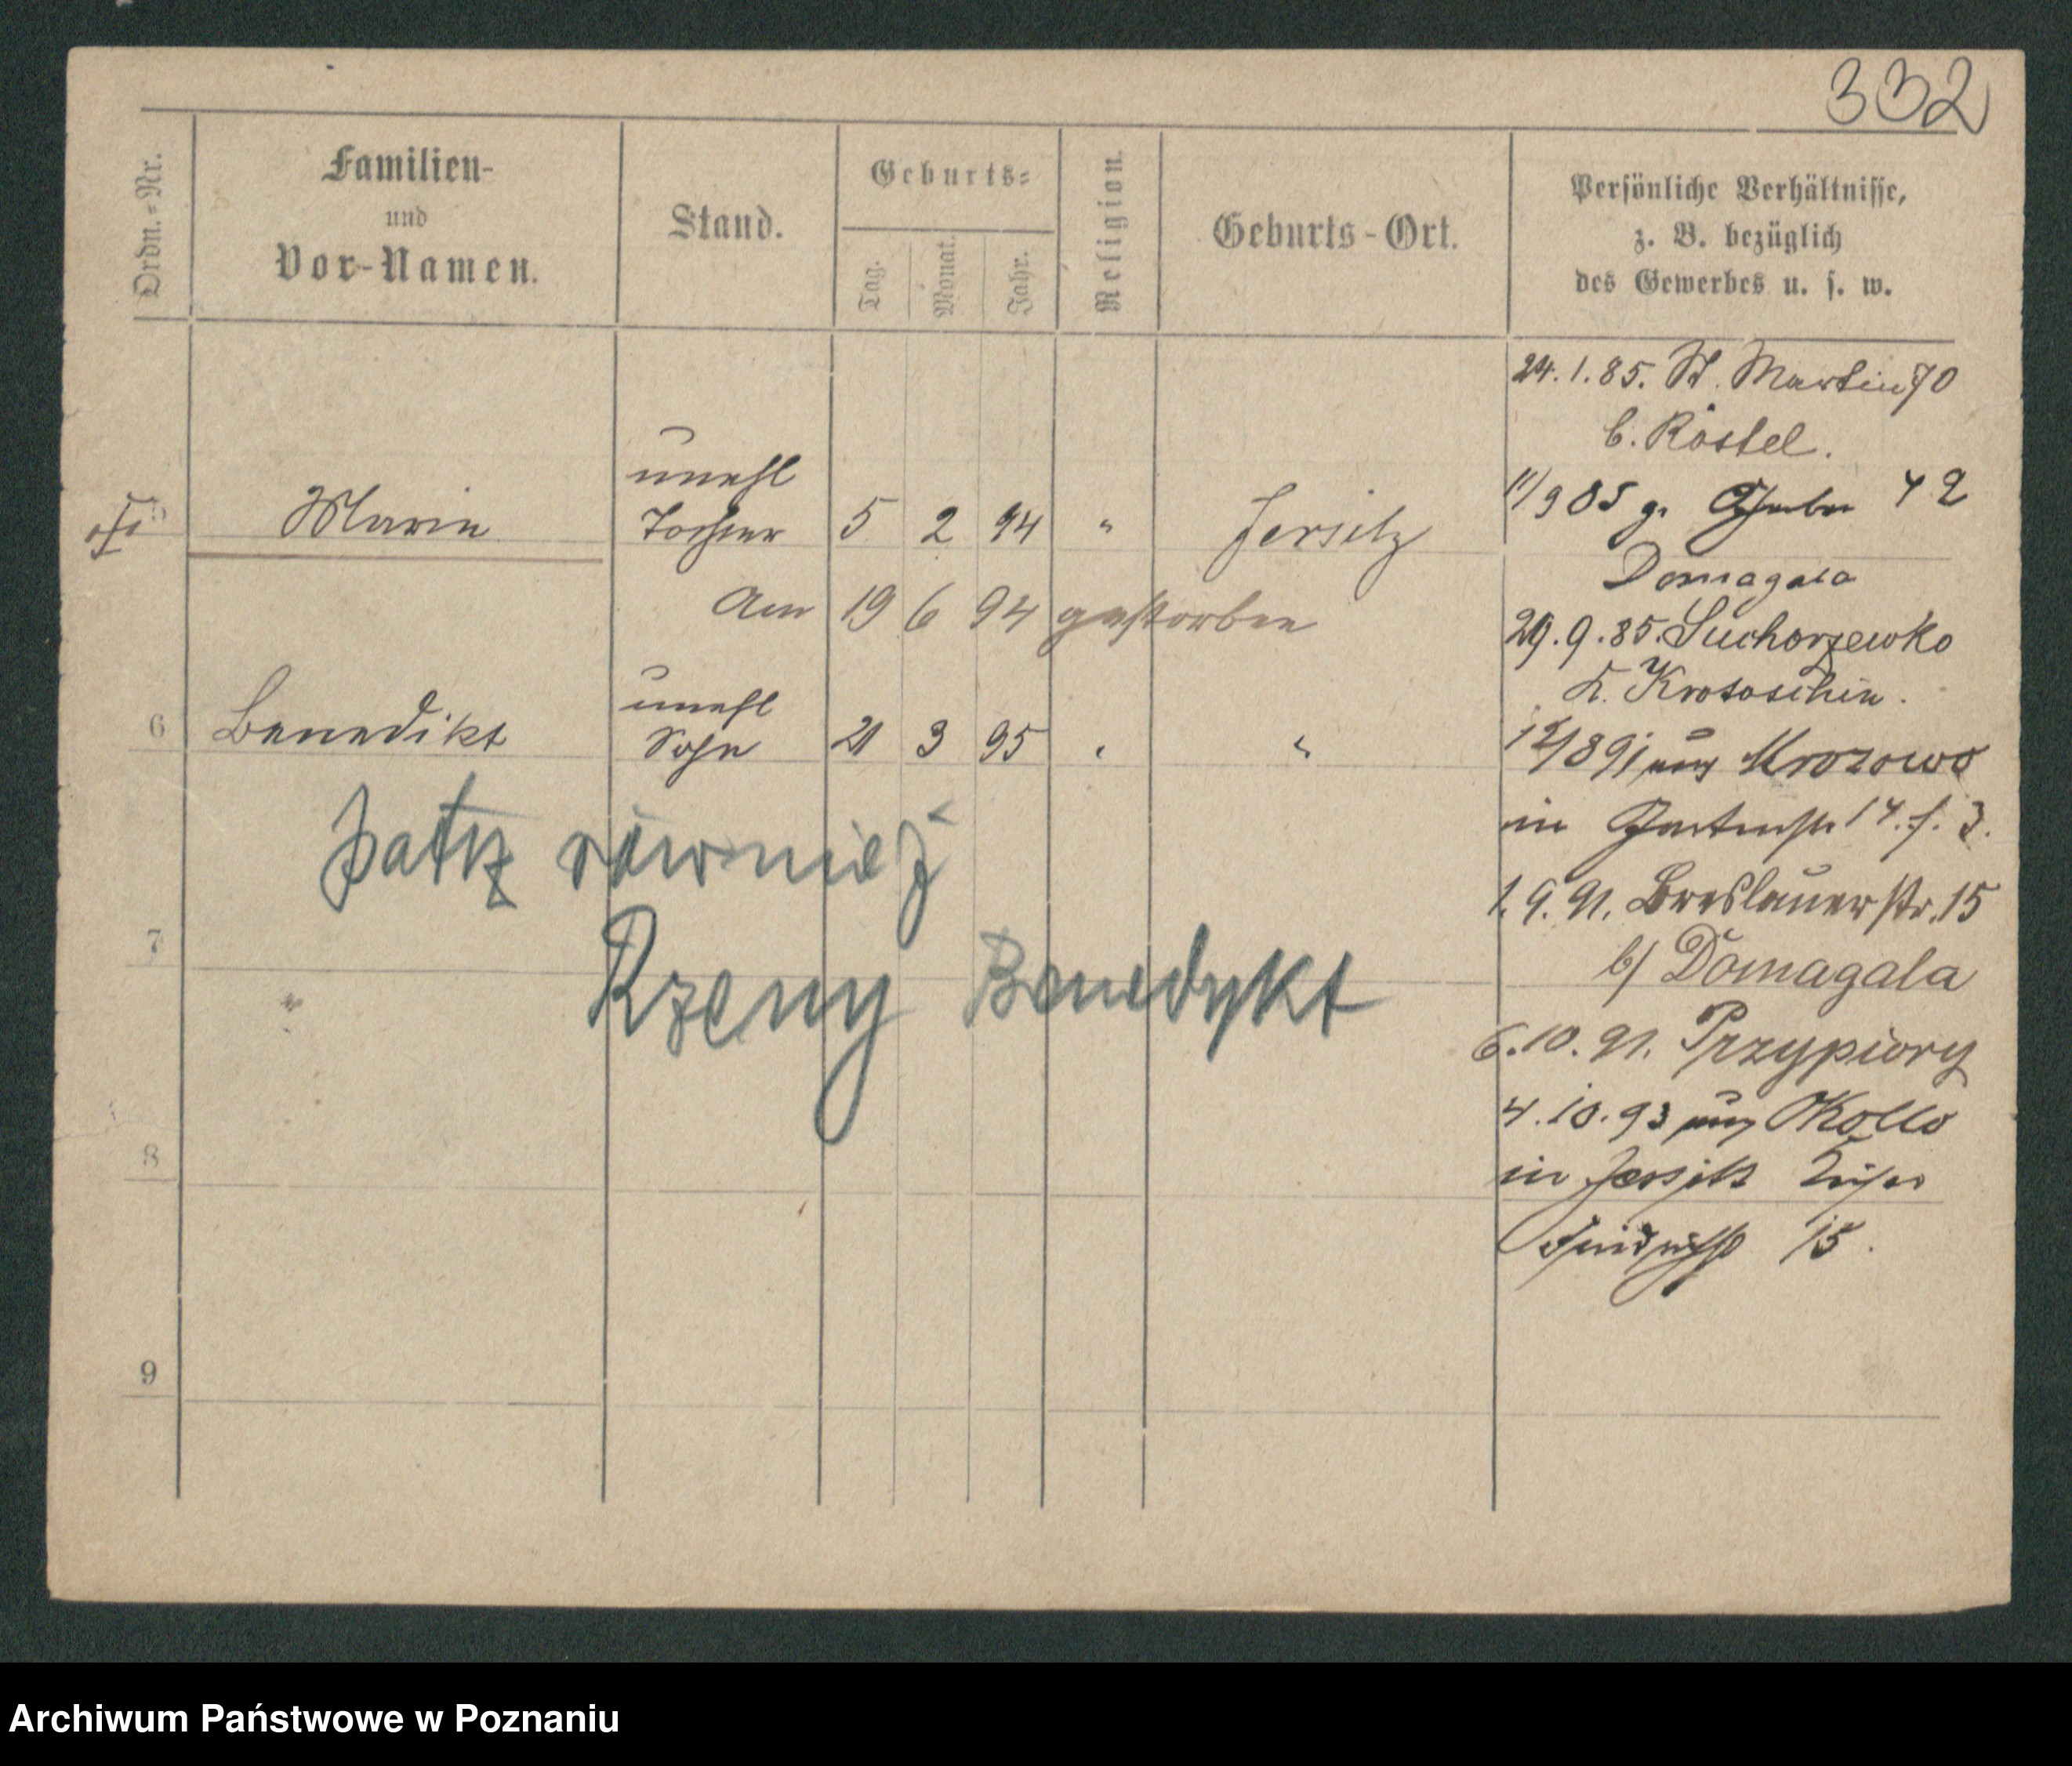 332
Ordn.-Nr.
Familien-
und
Vor-Namen.
Stand.
Geburts-
Tag.
Monat.
Jahr.
Religion.
Geburts-Ort.
Persönliche Verhältnisse,
z. B. bezüglich
des Gewerbes u. s. w.
24.1.85. St. Martin 70
b. Röstel.
unehl
5 Marie Tochter 5 2 94 " Jersitz
Am 19 6 94 gestorben
Domagala
29.9.85. Suchorzewko
K. Krotoschin.
unehl
6 Benedikt Sohn 21 3 95 " "
12/8 91 aus Mrozowo
in Gartenstr 14. f. 3.
1.9.91. Breslauerstr. 15
b/ Domagala
6.10.91. Przypiory
4.10.93 aus Okollo
in Jersitz
15.
patrz również
Rzeny Benedykt
7
8
9
Archiwum Państwowe w Poznaniu